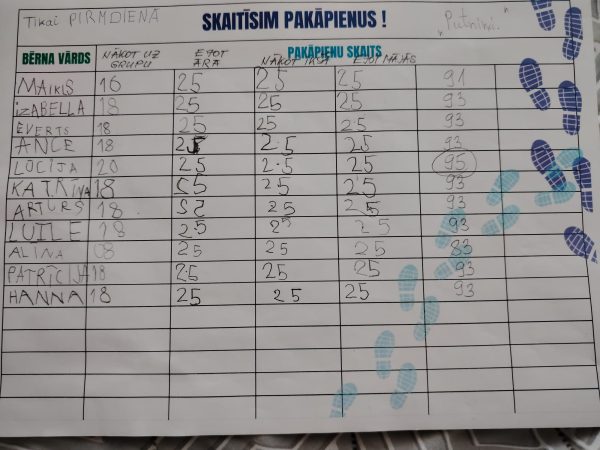 Tikai PIRMDIENĀ
SKAITĪSIM PAKĀPIENUS !
"Putniņi"
PAKĀPIENU SKAITS
BĒRNA VĀRDS NĀKOT UZ GRUPU EJOT ĀRĀ NĀKOT IEKŠĀ EJOT MĀJĀS
MAIKLS 16 25 25 25 91
IZABELLA 18 25 25 25 93
ĒVERTS 18 25 25 25 93
ANCE 18 25 25 25 93
LŪCIJA 20 25 25 25 95
KATRĪNA 18 25 25 25 93
ARTURS 18 25 25 25 93
LUĪZE 18 25 25 25 93
ALĪNA 08 25 25 25 83
PATRĪCIJA 18 25 25 25 93
HANNA 18 25 25 25 93